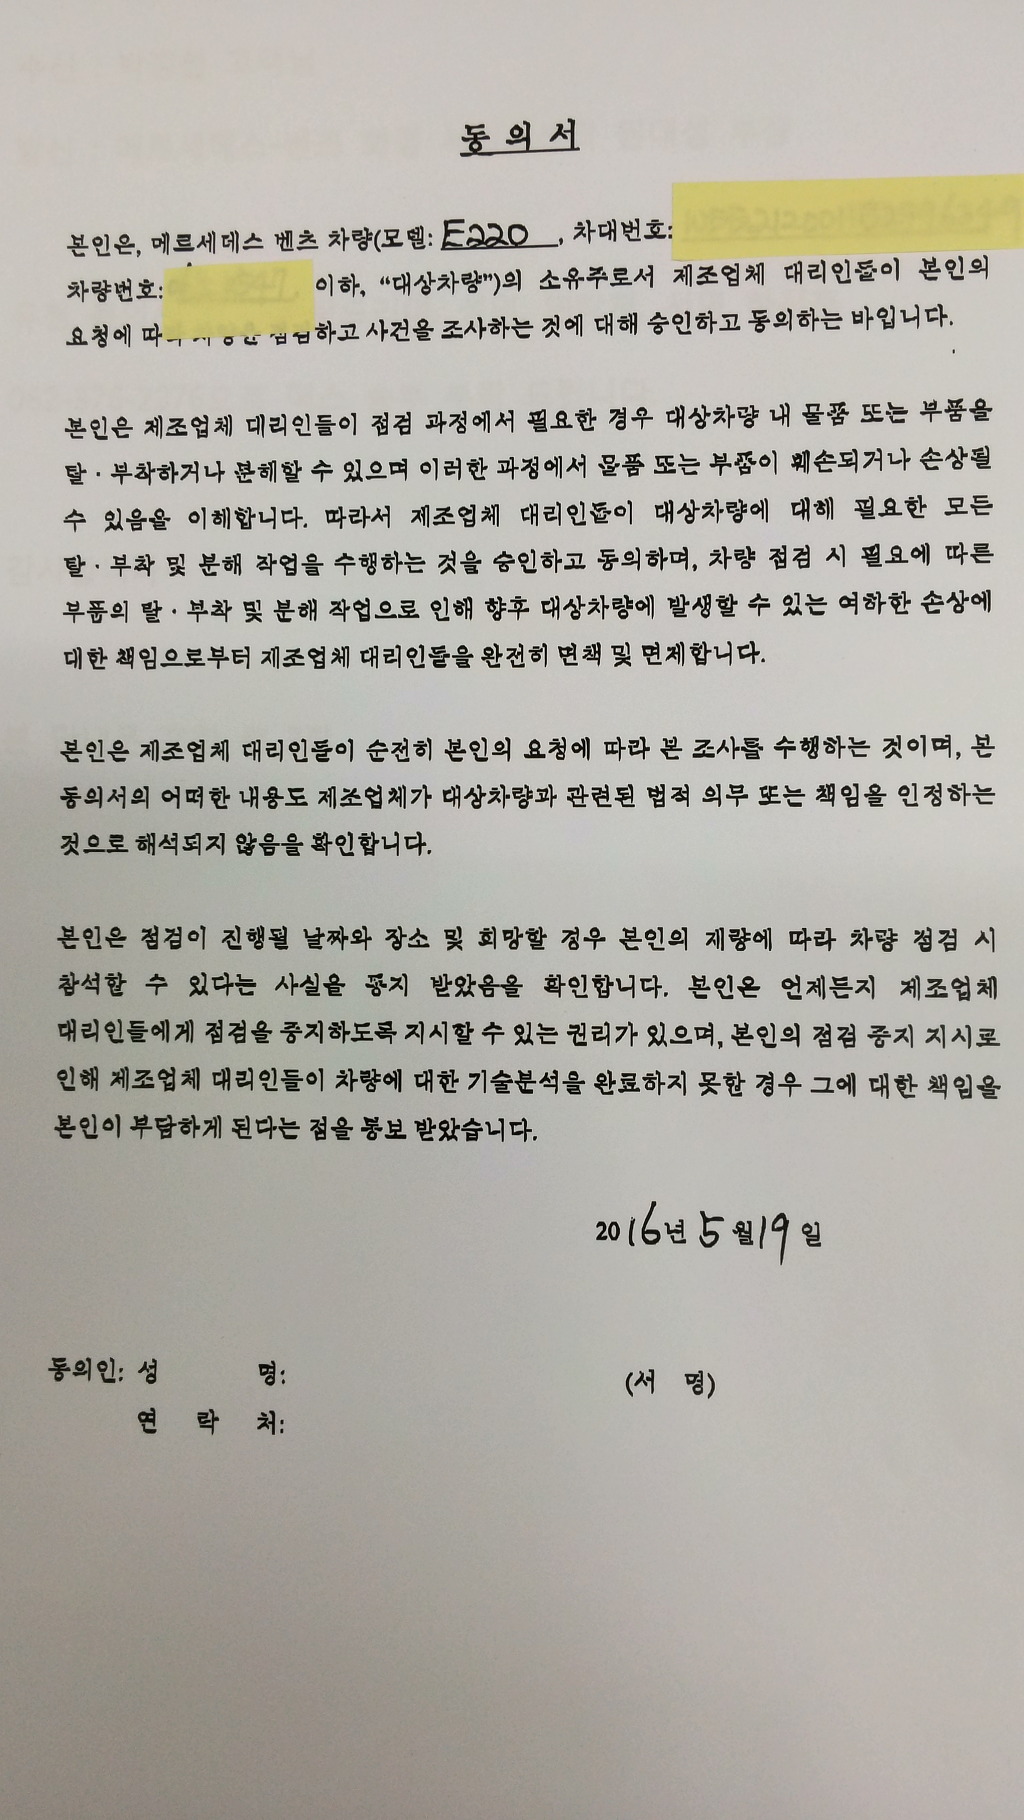 동 의 서
본인은, 메르세데스 벤츠 차량(모델: E220, 차대번호:
차량번호: 이하, “대상차량”)의 소유주로서 제조업체 대리인들이 본인의
요청에 따라 차량을 점검하고 사건을 조사하는 것에 대해 승인하고 동의하는 바입니다.
본인은 제조업체 대리인들이 점검 과정에서 필요한 경우 대상차량 내 물품 또는 부품을
탈·부착하거나 분해할 수 있으며 이러한 과정에서 물품 또는 부품이 훼손되거나 손상될
수 있음을 이해합니다. 따라서 제조업체 대리인들이 대상차량에 대해 필요한 모든
탈·부착 및 분해 작업을 수행하는 것을 승인하고 동의하며, 차량 점검 시 필요에 따른
부품의 탈·부착 및 분해 작업으로 인해 향후 대상차량에 발생할 수 있는 여하한 손상에
대한 책임으로부터 제조업체 대리인들을 완전히 면책 및 면제합니다.
본인은 제조업체 대리인들이 순전히 본인의 요청에 따라 본 조사를 수행하는 것이며, 본
동의서의 어떠한 내용도 제조업체가 대상차량과 관련된 법적 의무 또는 책임을 인정하는
것으로 해석되지 않음을 확인합니다.
본인은 점검이 진행될 날짜와 장소 및 희망할 경우 본인의 재량에 따라 차량 점검 시
참석할 수 있다는 사실을 통지 받았음을 확인합니다. 본인은 언제든지 제조업체
대리인들에게 점검을 중지하도록 지시할 수 있는 권리가 있으며, 본인의 점검 중지 지시로
인해 제조업체 대리인들이 차량에 대한 기술분석을 완료하지 못한 경우 그에 대한 책임을
본인이 부담하게 된다는 점을 통보 받았습니다.
2016년 5월 19일
동의인: 성 명: (서 명)
연 락 처: